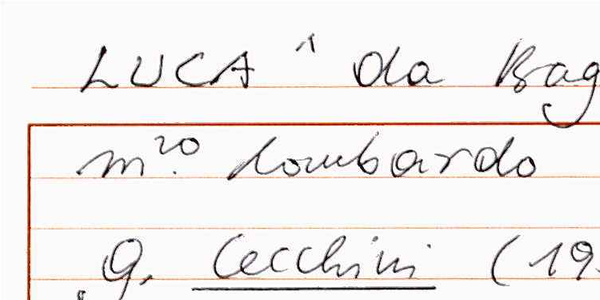 LUCA ^ da Bag
m.ro lombardo
g. Cecchini (19